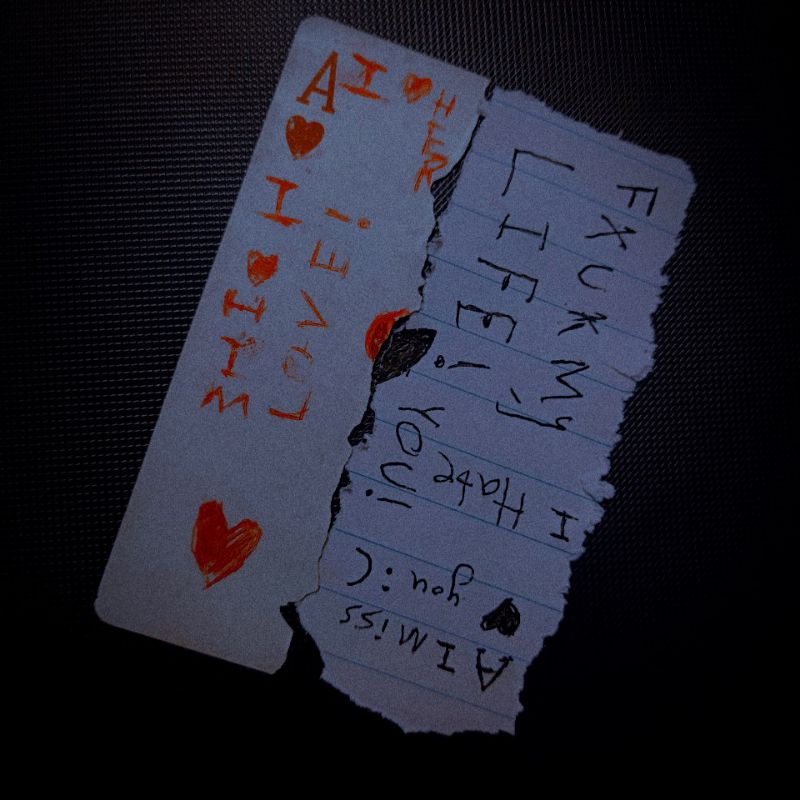 A
I ♥ HER
I ♥ HIM
LOVE!
FXUK MY
LIFE!
I Hate
YOU!
A I Miss
♥ you :(